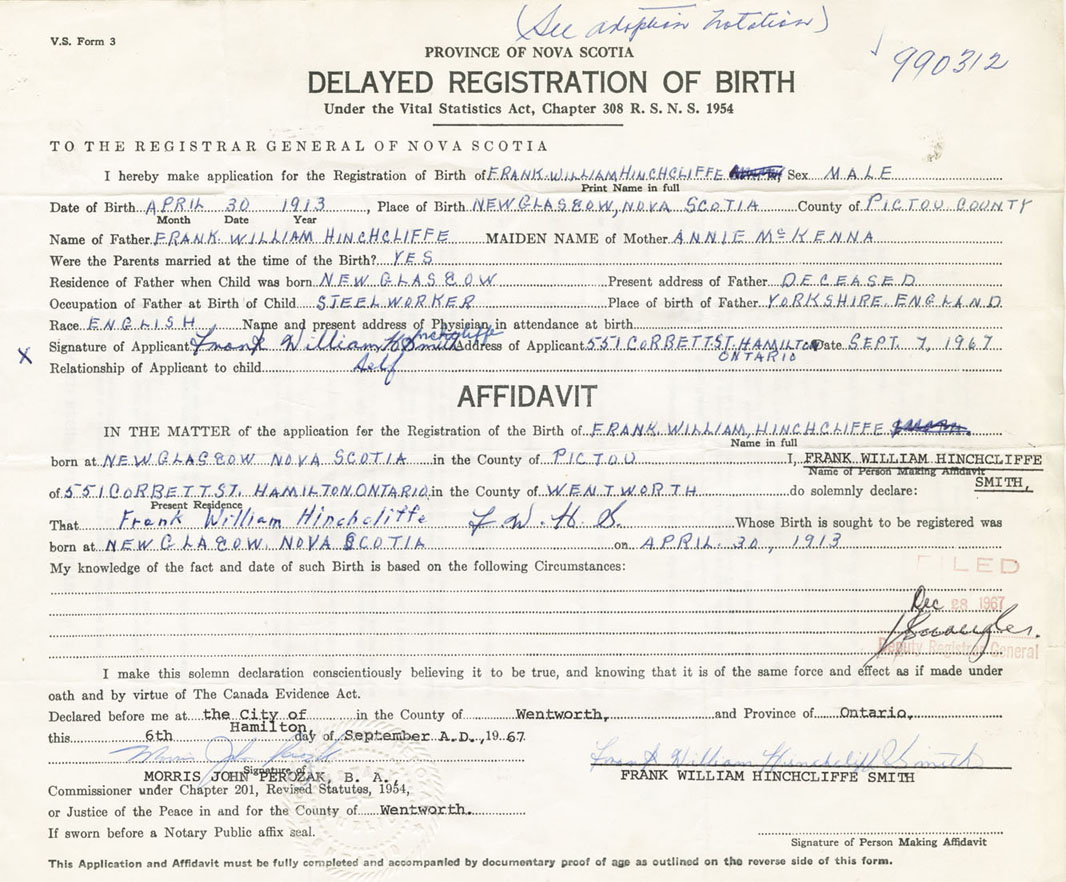 (See adoption notation)
V.S. Form 3
PROVINCE OF NOVA SCOTIA
990312
DELAYED REGISTRATION OF BIRTH
Under the Vital Statistics Act, Chapter 308 R. S. N. S. 1954
TO THE REGISTRAR GENERAL OF NOVA SCOTIA
I hereby make application for the Registration of Birth of FRANK WILLIAM HINCHCLIFFE Sex MALE
Print Name in full
Date of Birth APRIL 30 1913, Place of Birth NEW GLASGOW, NOVA SCOTIA County of PICTOU COUNTY
Month Date Year
Name of Father FRANK WILLIAM HINCHCLIFFE MAIDEN NAME of Mother ANNIE McKENNA
Were the Parents married at the time of the Birth? YES
Residence of Father when Child was born NEW GLASGOW Present address of Father DECEASED
Occupation of Father at Birth of Child STEELWORKER Place of birth of Father YORKSHIRE, ENGLAND
Race ENGLISH Name and present address of Physician in attendance at birth
Signature of Applicant Frank William Hinchcliffe Smith Address of Applicant 551 CORBETT ST. HAMILTON Date SEPT. 7, 1967
X
ONTARIO
Relationship of Applicant to child Self
AFFIDAVIT
IN THE MATTER of the application for the Registration of the Birth of FRANK WILLIAM, HINCHCLIFFE
Name in full
born at NEW GLASGOW NOVA SCOTIA in the County of PICTOU I, FRANK WILLIAM HINCHCLIFFE
Name of Person Making Affidavit
of 551 CORBETT ST. HAMILTON ONTARIO, in the County of WENTWORTH do solemnly declare: SMITH,
Present Residence
That Frank William Hinchcliffe F. W. H. S. Whose Birth is sought to be registered was
born at NEW GLAGOW, NOVA SCOTIA on APRIL. 30, 1913
My knowledge of the fact and date of such Birth is based on the following Circumstances:
FILED
Dec 28 1967
Deputy Registrar General
I make this solemn declaration conscientiously believing it to be true, and knowing that it is of the same force and effect as if made under
oath and by virtue of The Canada Evidence Act.
Declared before me at the City of in the County of Wentworth, and Province of Ontario,
Hamilton,
this 6th day of September A.D., 19 67.
Frank William Hinchcliff Smith
Signature of
MORRIS JOHN PEROZAK, B. A., FRANK WILLIAM HINCHCLIFFE SMITH
Commissioner under Chapter 201, Revised Statutes, 1954,
or Justice of the Peace in and for the County of Wentworth.
If sworn before a Notary Public affix seal.
Signature of Person Making Affidavit
This Application and Affidavit must be fully completed and accompanied by documentary proof of age as outlined on the reverse side of this form.